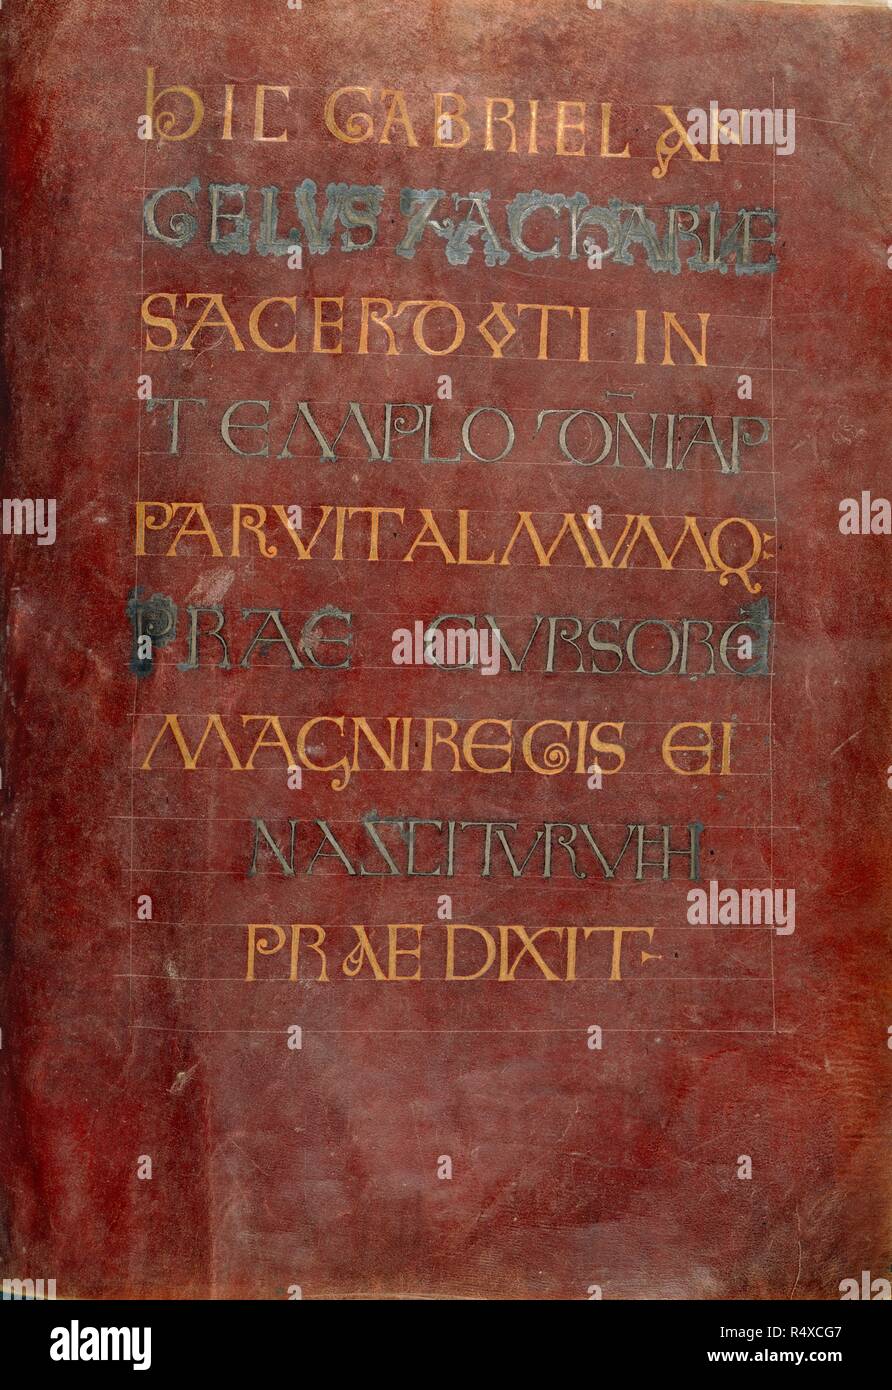 HIC GABRIEL AN
GELUS ZACHARIAE
SACERDOTI IN
TEMPLO DN̄I AP
PARVIT ALMVMQ:
PRAE CVRSORĒ
MAGNI REGIS EI
NASCITVRVM
PRAE DIXIT·
alamy
alamy stock photo
R4XCG7
www.alamy.com